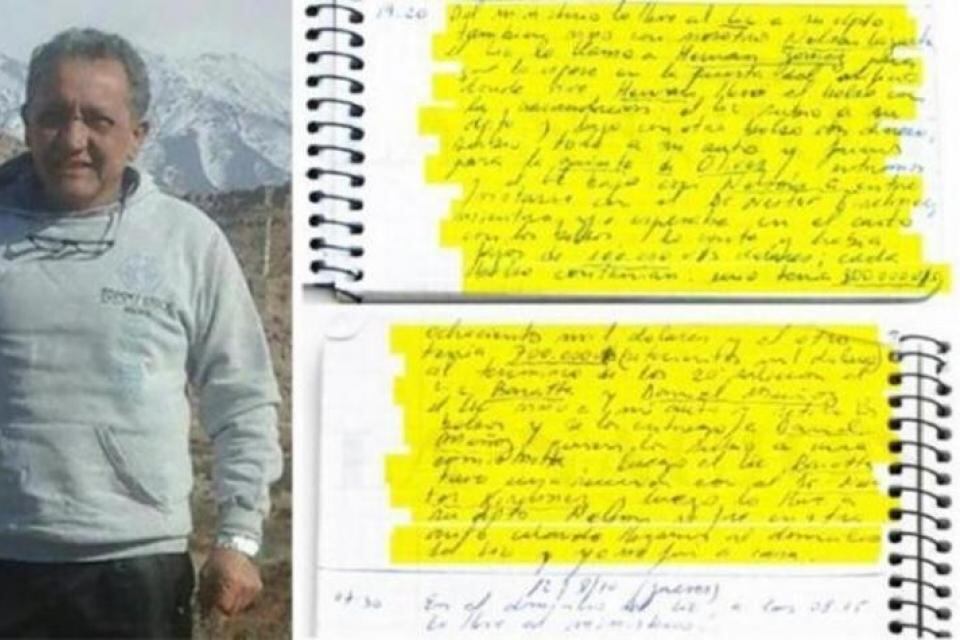 19:20 Del ministerio lo llevé al Lic a su dpto.
también vino con nosotros Nelson
el Lic lo llamó a Hernan Gomez para
que lo espere en la puerta del edificio
donde vive Hernan llevó el bolso con
la recaudación el Lic subió a su
dpto y bajo con otro bolso con dinero,
todo a mi auto y fuimos
para la quinta de Olivos, entramos
y el Lic bajo con Nelson a entre
en el Dr Nestor Kirchner,
mientras yo esperaba en el auto
con los bolsos. Lo conté y había
fajos de 100.000 u$s dolares, cada
bolso contenían. uno tenia 800.000 u$s
ochociento mil dolares y el otro
tenia 700.000 (setecientos mil dolares)
al termino de los 20 minutos el
Lic Baratta y Daniel Muñoz
el Lic vino a mi auto y retiró los
bolsos y se los entregó a Daniel
Muñoz y
Luego el Lic Baratta
tuvo una reunion con el Dr Nes
tor Kirchner y luego lo llevé a
su dpto. Nelson se fue en otro
auto cuando llegamos al domicilio
del Lic y yo me fui a casa.
12/8/10 (jueves)
07:30 En el domicilio del Lic, a las 08:15
lo llevé al ministerio.